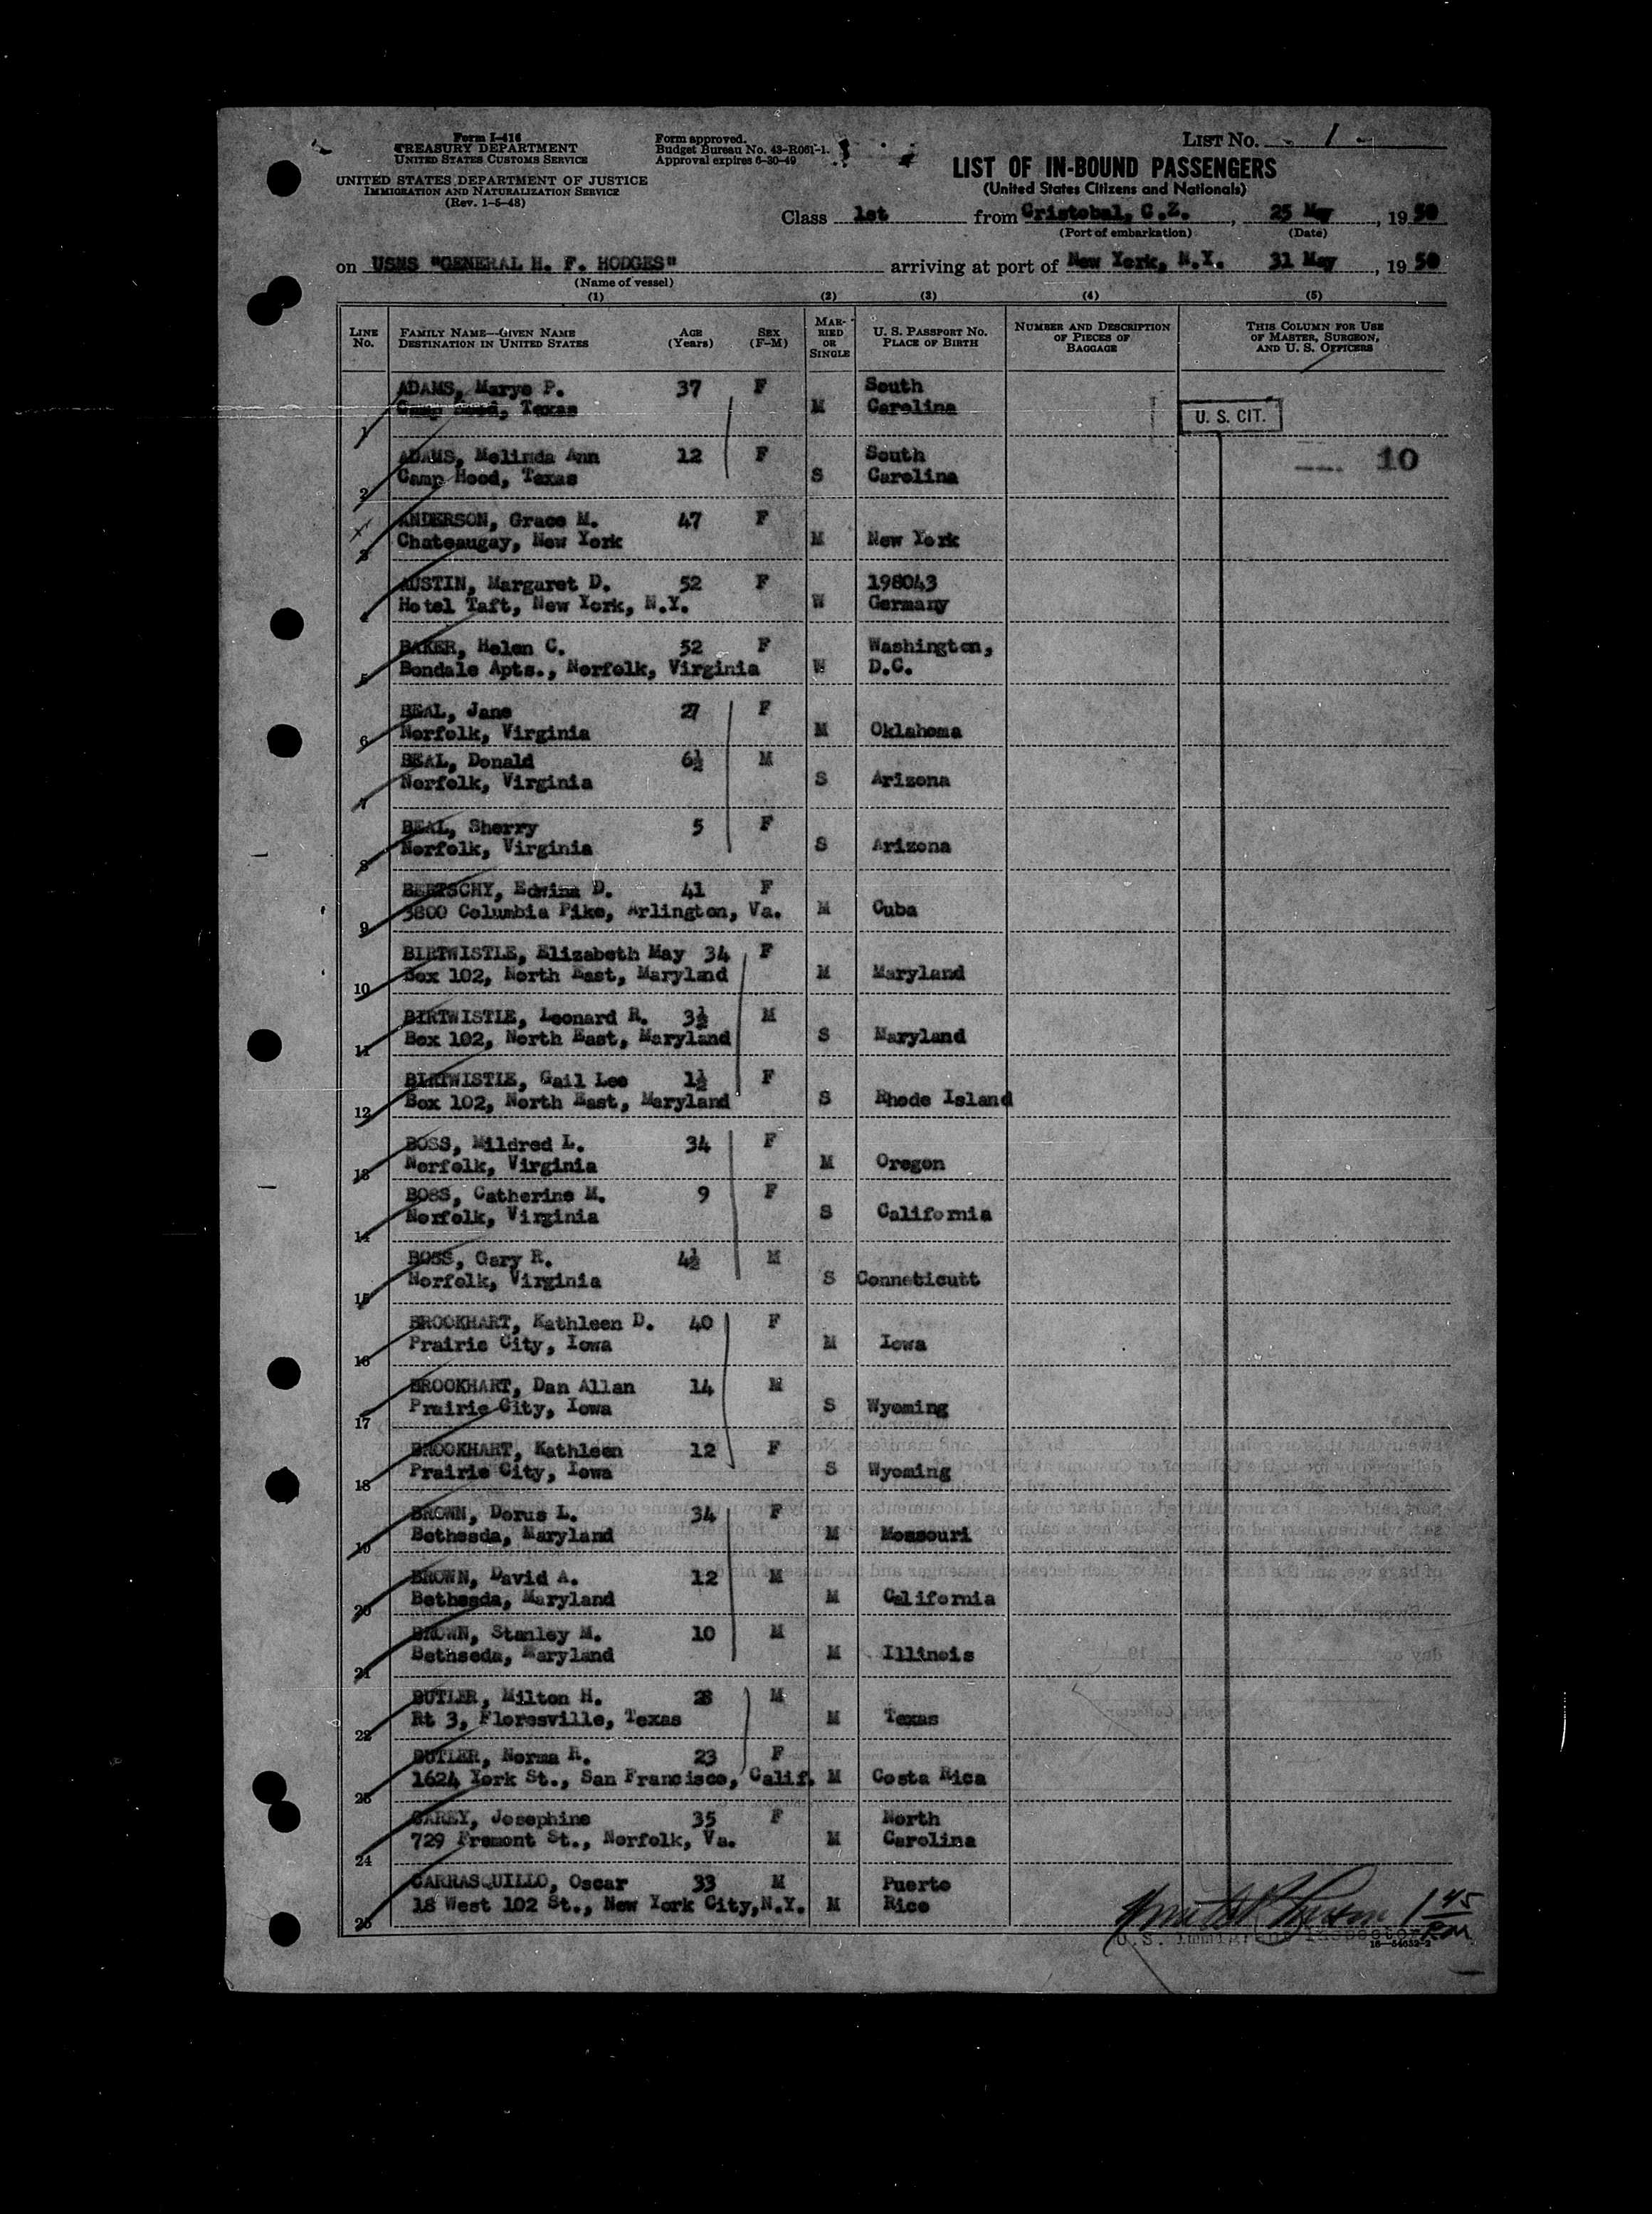 Form I-416
TREASURY DEPARTMENT
UNITED STATES CUSTOMS SERVICE
UNITED STATES DEPARTMENT OF JUSTICE
IMMIGRATION AND NATURALIZATION SERVICE
(Rev. 1-5-48)
Form approved.
Budget Bureau No. 43-R061-1.
Approval expires 6-30-49
LIST NO. - 1 -
LIST OF IN-BOUND PASSENGERS
(United States Citizens and Nationals)
Class 1st from Cristobal, C.Z., 25 May, 1950
(Port of embarkation) (Date)
on USNS "GENERAL H. F. HODGES" arriving at port of New York, N.Y. 31 May, 1950
(Name of vessel)
(1) (2) (3) (4) (5)
LINE NO. FAMILY NAME—GIVEN NAME DESTINATION IN UNITED STATES AGE (Years) SEX (F-M) MARRIED OR SINGLE U. S. PASSPORT NO. PLACE OF BIRTH NUMBER AND DESCRIPTION OF PIECES OF BAGGAGE THIS COLUMN FOR USE OF MASTER, SURGEON, AND U. S. OFFICERS
ADAMS, Marye P. 37 F South
1 Camp Hood, Texas M Carolina U. S. CIT.
ADAMS, Melinda Ann 12 F South 10
2 Camp Hood, Texas S Carolina
ANDERSON, Grace M. 47 F
3 Chateaugay, New York M New York
AUSTIN, Margaret D. 52 F 198043
4 Hotel Taft, New York, N.Y. W Germany
BAKER, Helen C. 52 F Washington,
5 Bondale Apts., Norfolk, Virginia W D.C.
BEAL, Jane 27 F
6 Norfolk, Virginia M Oklahoma
BEAL, Donald 6½ M
7 Norfolk, Virginia S Arizona
BEAL, Sherry 5 F
8 Norfolk, Virginia S Arizona
BERTSCHY, Edwina D. 41 F
9 3800 Columbia Pike, Arlington, Va. M Cuba
BIRTWISTLE, Elizabeth May 34 F
10 Box 102, North East, Maryland M Maryland
BIRTWISTLE, Leonard R. 3½ M
11 Box 102, North East, Maryland S Maryland
BIRTWISTLE, Gail Lee 1½ F
12 Box 102, North East, Maryland S Rhode Island
BOSS, Mildred L. 34 F
13 Norfolk, Virginia M Oregon
BOSS, Catherine M. 9 F
14 Norfolk, Virginia S California
BOSS, Gary R. 4½ M
15 Norfolk, Virginia S Conneticutt
BROOKHART, Kathleen D. 40 F
16 Prairie City, Iowa M Iowa
BROOKHART, Dan Allan 14 M
17 Prairie City, Iowa S Wyoming
BROOKHART, Kathleen 12 F
18 Prairie City, Iowa S Wyoming
BROWN, Dorus L. 34 F
19 Bethesda, Maryland M Mossouri
BROWN, David A. 12 M
20 Bethesda, Maryland M California
BROWN, Stanley M. 10 M
21 Bethseda, Maryland M Illinois
BUTLER, Milton H. 28 M
22 Rt 3, Floresville, Texas M Texas
BUTLER, Norma R. 23 F
23 1624 York St., San Francisco, Calif. M Costa Rica
CAREY, Josephine 35 F North
24 729 Fremont St., Norfolk, Va. M Carolina
CARRASQUILLO, Oscar 33 M Puerto
25 18 West 102 St., New York City, N.Y. M Rico
1 45 PM
U.S. Immigrant Inspector
16—54652-2